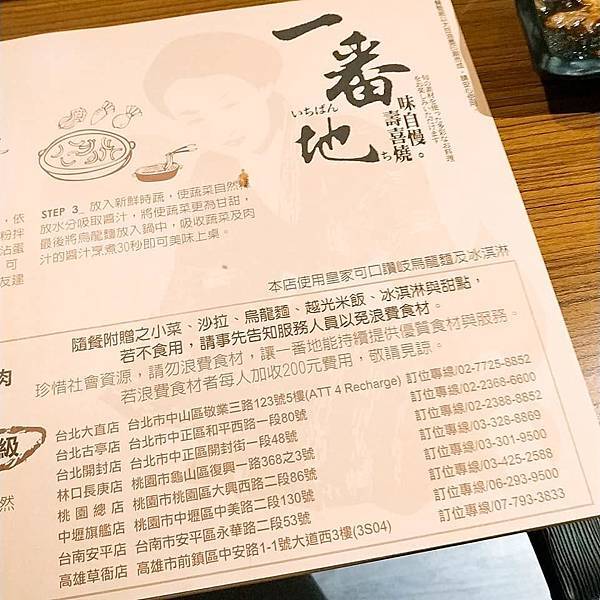 一番地
いちばん
ち
味自慢。
壽喜燒
旬の素材を使った多彩なお料理
をお楽しみいただけます
STEP 3_ 放入新鮮時蔬，使蔬菜自然釋
放水分吸取醬汁，將使蔬菜更為甘甜，
最後將烏龍麵放入鍋中，吸收蔬菜及肉
汁的醬汁烹煮30秒即可美味上桌。
，依
粉拌
沾蛋
可
友達
本店使用皇家可口讚岐烏龍麵及冰淇淋
隨餐附贈之小菜、沙拉、烏龍麵、越光米飯、冰淇淋與甜點，
若不食用，請事先告知服務人員以免浪費食材。
珍惜社會資源，請勿浪費食材，讓一番地能持續提供優質食材與服務。
若浪費食材者每人加收200元費用，敬請見諒。
肉
級
然
台北大直店 台北市中山區敬業三路123號5樓(ATT 4 Recharge) 訂位專線/02-7725-8852
台北古亭店 台北市中正區和平西路一段80號 訂位專線/02-2368-6600
台北開封店 台北市中正區開封街一段48號 訂位專線/02-2388-8852
林口長庚店 桃園市龜山區復興一路368之3號 訂位專線/03-328-8869
桃園總店 桃園市桃園區大興西路二段86號 訂位專線/03-301-9500
中壢旗艦店 桃園市中壢區中美路二段130號 訂位專線/03-425-2588
台南安平店 台南市安平區永華路二段53號 訂位專線/06-293-9500
高雄草衙店 高雄市前鎮區中安路1-1號大道西3樓(3S04) 訂位專線/07-793-3833